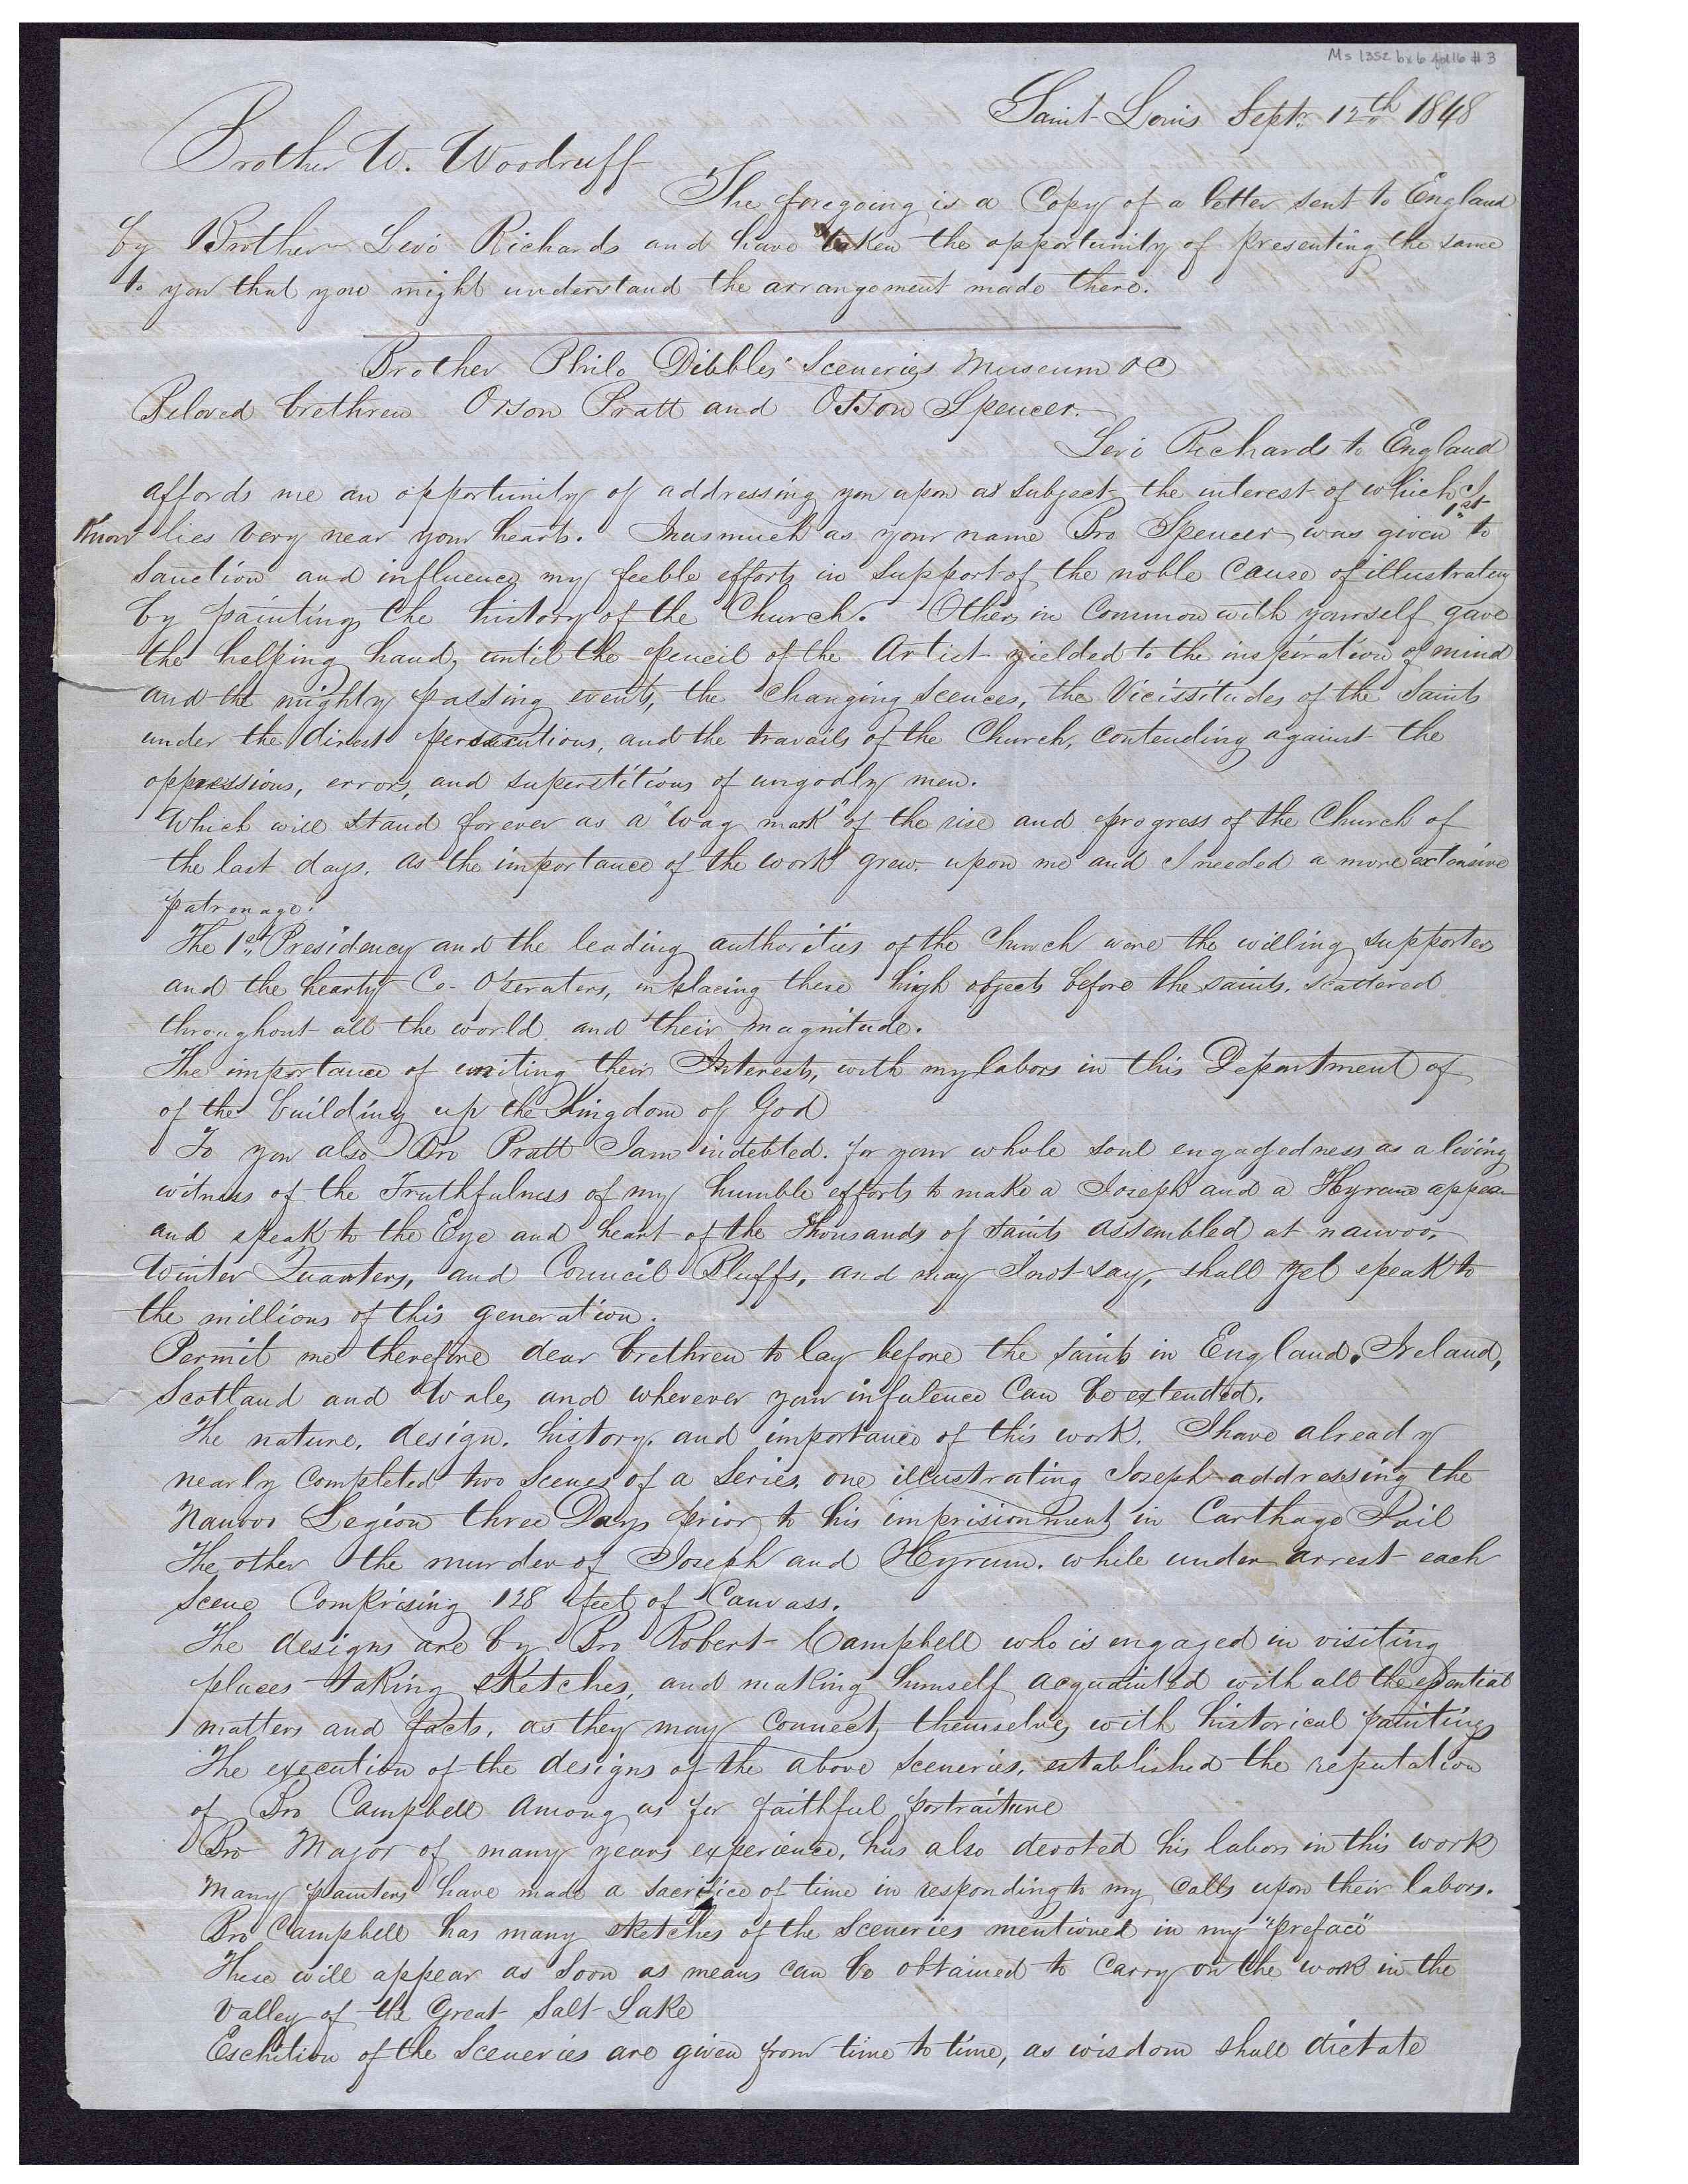 Ms 1352 bx 6 fd 16 # 3
Saint Louis Sept. 12th 1848
Brother W. Woodruff
The foregoing is a Copy of a letter sent to England
by Brother Levi Richards and have taken the opportunity of presenting the same
to you that you might understand the arrangement made there.
Brother Philo Dibbles Sceneries Museum &C
Beloved brethren Orson Pratt and Orson Spencer.
Levi Richards to England
affords me an opportunity of addressing you upon as subject, the interest of which I
Know lies very near your hearts. Inasmuch as your name Bro Spencer was given 1st to
Sanction and influence my feeble efforts in support of the noble cause of illustrateing
by painting the history of the Church. Others in Common with yourself gave
the helping hand, until the pencil of the Artist yielded to the inspiration of mind
and the mighty passing events, the Changing Scences, the Vicissitudes of the Saints
under the direst persecutions, and the travails of the Church, contending against the
oppressions, errors, and superstitions of ungodly men.
Which will stand forever as a "way mark" of the rise and progress of the Church of
the last days, as the importance of the work grew upon me and I needed a more extensive
patronage.
The 1st Presidency and the leading authorities of the Church were the willing supporters
and the hearty Co-Operaters, in placing these high objects before the saints, scattered
throughout all the world and their magnitude.
The importance of uniting their Interests, with my labors in this Department of
of the building up the Kingdom of God
To you also Bro Pratt I am indebted. for your whole soul engagedness as a living
witness of the Truthfulness of my humble efforts to make a Joseph and a Hyrum appear
and speak to the Eye and heart of the Thousands of saints assembled at nauvoo,
Winter Quarters, and Council Bluffs, and may I not say, shall yet speak to
the millions of this generation.
Permit me therefore dear brethren to lay before the saints in England, Ireland,
Scotland and Wales and wherever your infulence Can be extended.
The nature, design, history, and importance of this work. I have already
nearly completed two Scenes of a Series, one illustrating Joseph addressing the
Nauvoo Legion three Days prior to his imprisionment in Carthage Jail
The other the murder of Joseph and Hyrum, while under arrest each
Scene Comprising 128 feet of Canvass.
The designs are by Bro Robert Campbell who is engaged in visiting
places taking sketches, and making himself acquainted with all the essential
matters and facts, as they may connect themselves with historical paintings
The execution of the designs of the above sceneries, established the reputation
of Bro Campbell Among us for faithful portraiture
Bro Major of many years experience, has also devoted his labors in this work
Many painters have made a sacrifice of time in responding to my Calls upon their labors.
Bro Campbell has many sketches of the Sceneries mentioned in my "preface"
These will appear as soon as means can be obtained to Carry on the work in the
Valley of the Great Salt Lake
Exchition of the Sceneries are given from time to time, as wisdom shall dictate